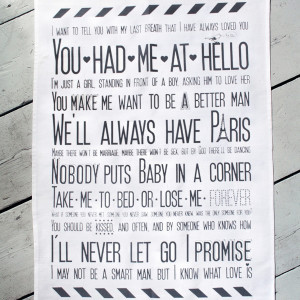 I WANT TO TELL YOU WITH MY LAST BREATH THAT I HAVE ALWAYS LOVED YOU
YOU HAD ME AT HELLO
I'M JUST A GIRL, STANDING IN FRONT OF A BOY, ASKING HIM TO LOVE HER
YOU MAKE ME WANT TO BE A BETTER MAN
WE'LL ALWAYS HAVE PARIS
MAYBE THERE WON'T BE MARRIAGE, MAYBE THERE WON'T BE SEX, BUT BY GOD THERE'LL BE DANCING
NOBODY PUTS BABY IN A CORNER
TAKE ME TO BED OR LOSE ME FOREVER
WHAT IF SOMEONE YOU NEVER MET, SOMEONE YOU NEVER SAW, SOMEONE YOU NEVER KNEW WAS THE ONLY SOMEONE FOR YOU?
YOU SHOULD BE KISSED, AND OFTEN, AND BY SOMEONE WHO KNOWS HOW
I'LL NEVER LET GO I PROMISE
I MAY NOT BE A SMART MAN, BUT I KNOW WHAT LOVE IS